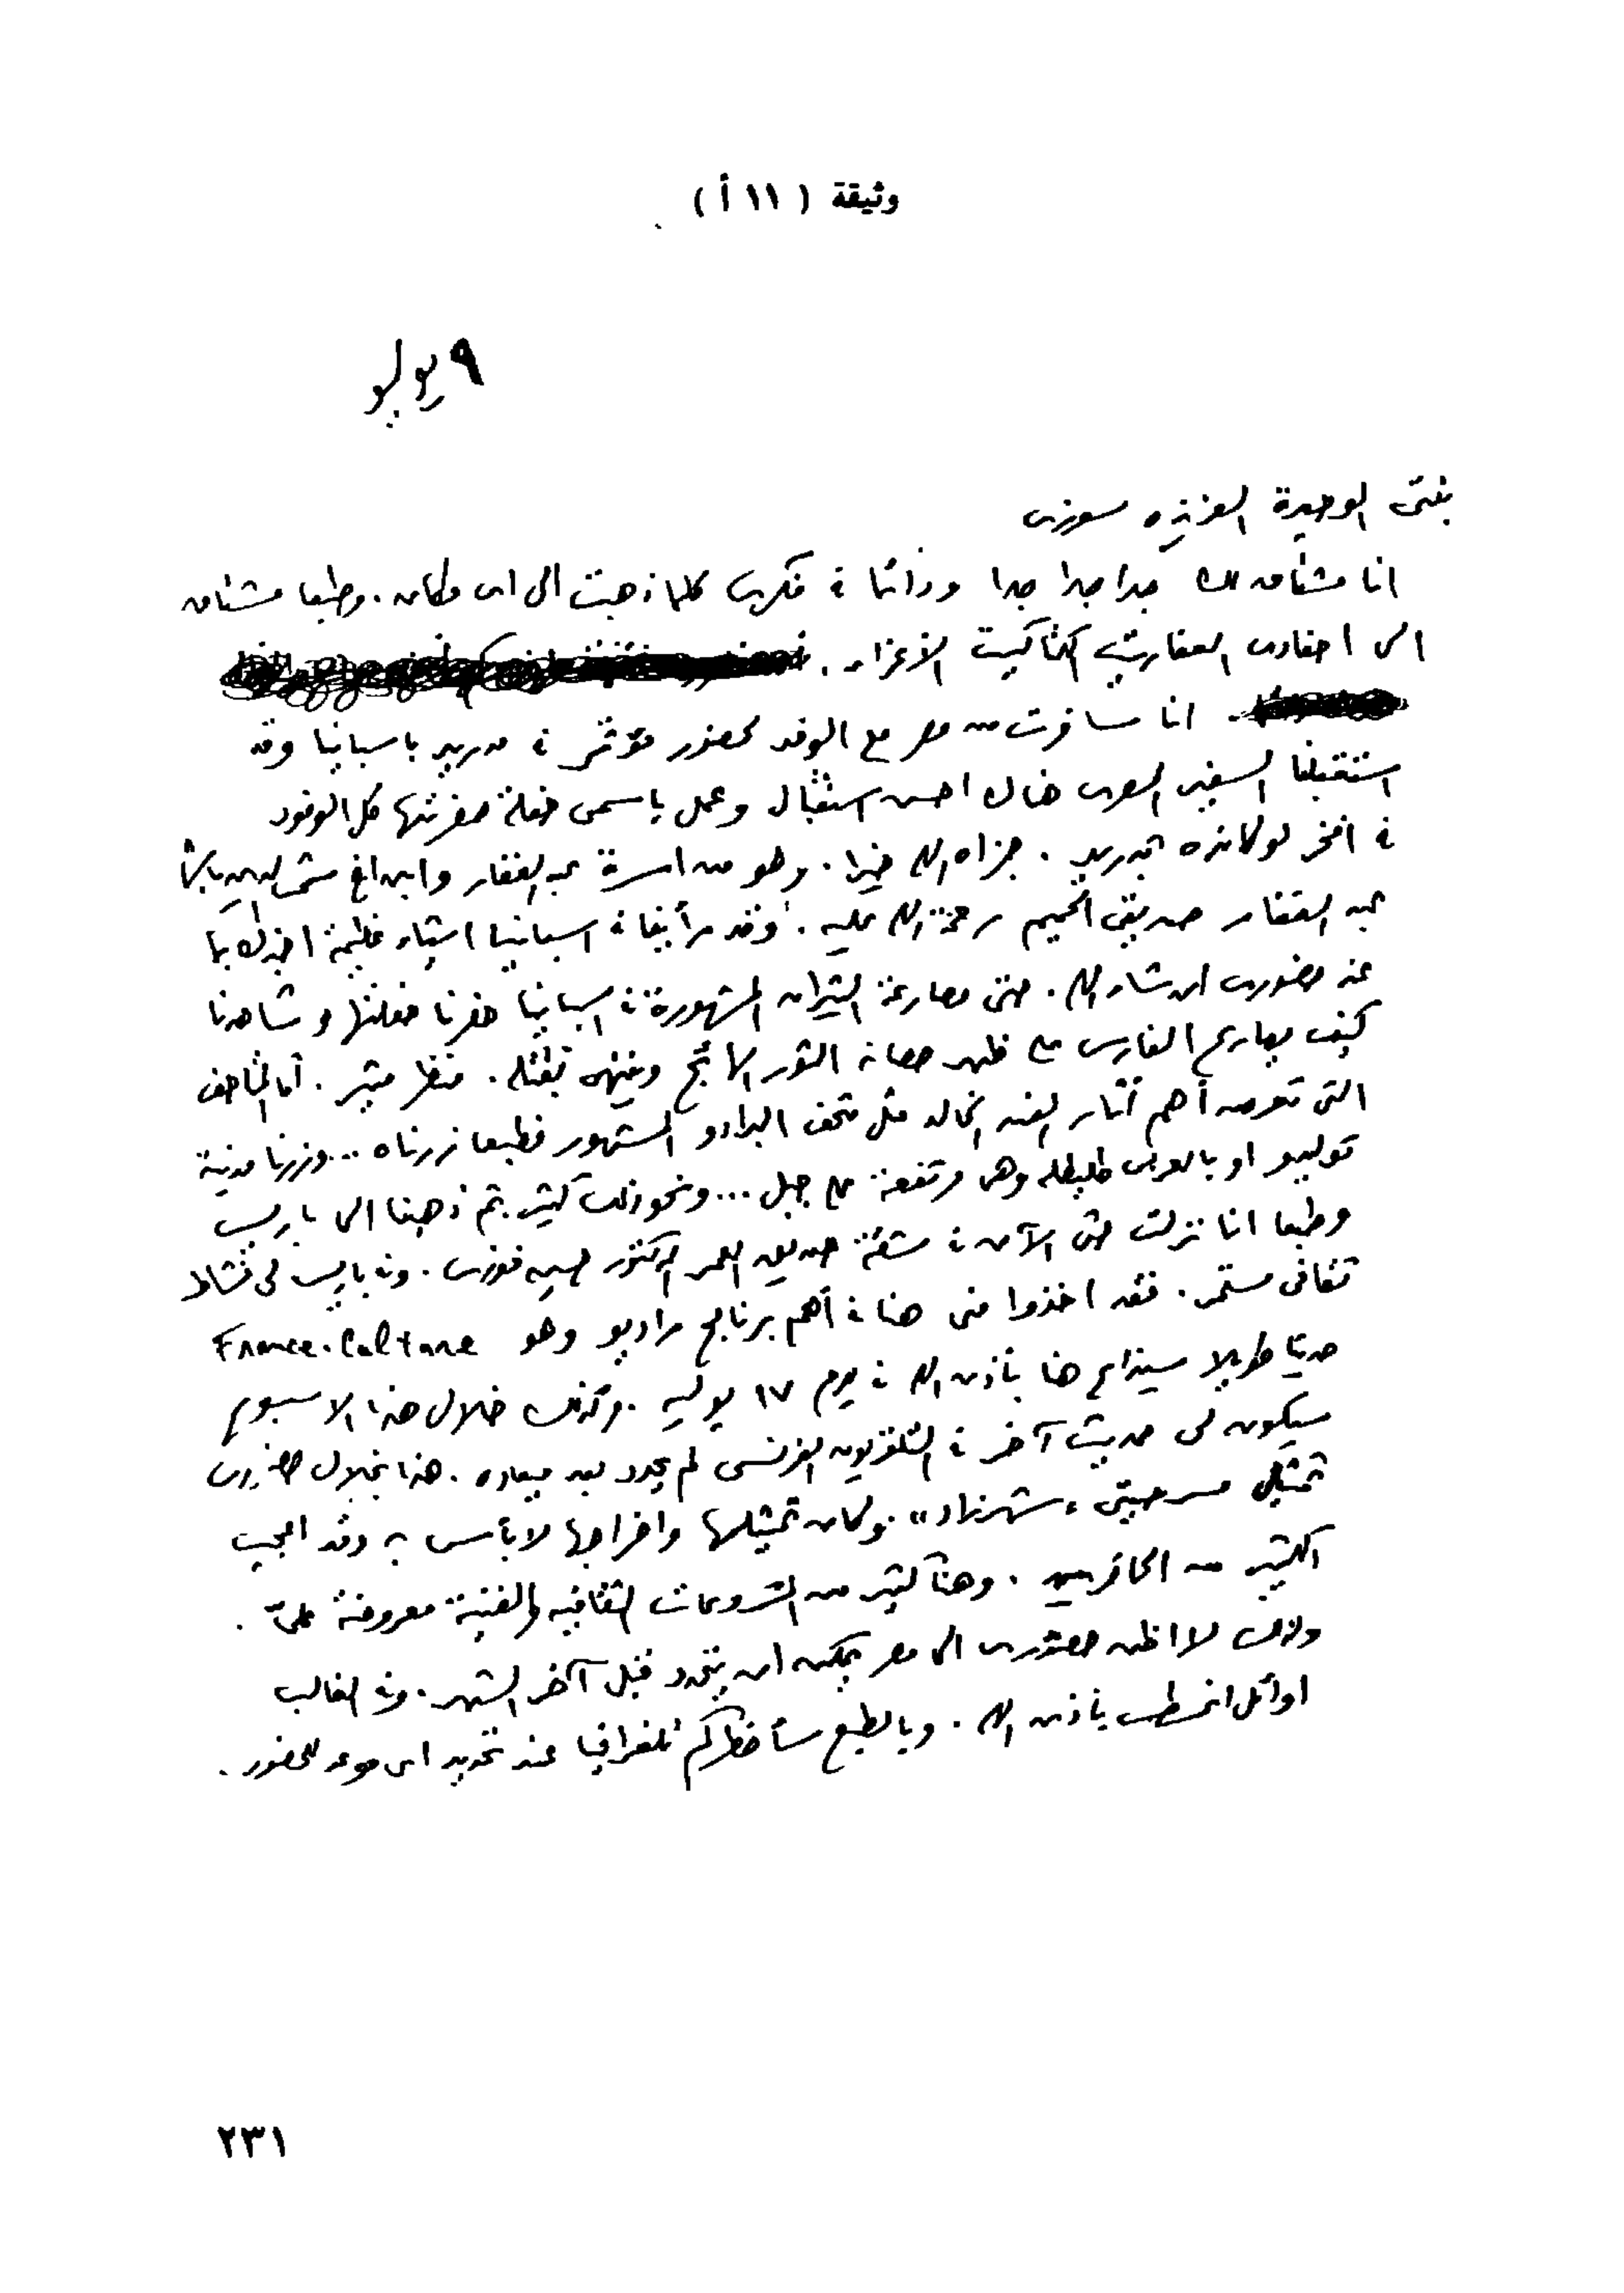 وثيقة ( ١١ أ )
٩ يوليو
بنتى الوحيدة العزيزه سوزى
انا مشتاق لك جدا جدا جدا ودائما فى فكرى كلما ذهبت الى اى مكان . وطبعا مشتاق
الى احفادى العفاريت الكتاكيت الأعزاء .
انا سافرت من مصر مع الوفد لحضور مؤتمر فى مدريد باسبانيا وقد
استقبلنا السفير المصرى هناك احسن استقبال وعمل باسمى حفلة حضرتها كل الوفود
فى افخر لوكانده بمدريد . جزاه الله خيرا . وهو من اسرة عبد الغفار وابن اخ شمس الدين باشا
عبد الغفار صديقى الحميم رحمة الله عليه . وقد رأينا فى اسبانيا اشياء عظيمة اخبرك بها
عند حضورى ان شاء الله . حتى مصارعة الثيران المشهورة فى اسبانيا حضرنا حفلتها وشاهدنا
كيف يصارع الفارس على ظهر حصانه الثور الهائج وينتهى بقتله . منظر مثير . أما المتاحف
التى تعرض أهم آثار الفن الخالد مثل متحف البرادو المشهور فطبعا زرناه ... وزرنا مدينة
توليدو او بالعربى طليطله وهى مرتفعة على جبل ... ونحو ذلك كثير ثم ذهبنا الى باريس
وطبعا انا نزلت حتى الآن فى شقة صديق العمر الدكتور حسين فوزى . وفى باريس لى نشاط
ثقافى مستمر . فقد اخذوا منى هنا فى أهم برنامج راديو وهو France.Culture
حديثا طويلا سيذاع هنا بأذن الله فى يوم ١٧ يوليه . وكذلك خلال هذا الاسبوع
سيكون لى حديث آخر فى التلفزيون الفرنسى لم يحدد بعد ميعاده . هذا بخلال حضورى
تمثيل مسرحيتى « شهرزاد » . وكان تمثيلها واخراجها لا بأس به وقد اعجب
الكثير من الحاضرين . وهنا كثير من المشروعات الثقافيه والفنية معروضة علىّ .
ولذلك لا اظن حضورى الى مصر يمكن ان يتحدد قبل آخر الشهر . وفى الغالب
اوائل اغسطس بأذن الله . وبالطبع سأخطركم تلغرافيا عند تحديد اى موعد للحضور .
٢٣١